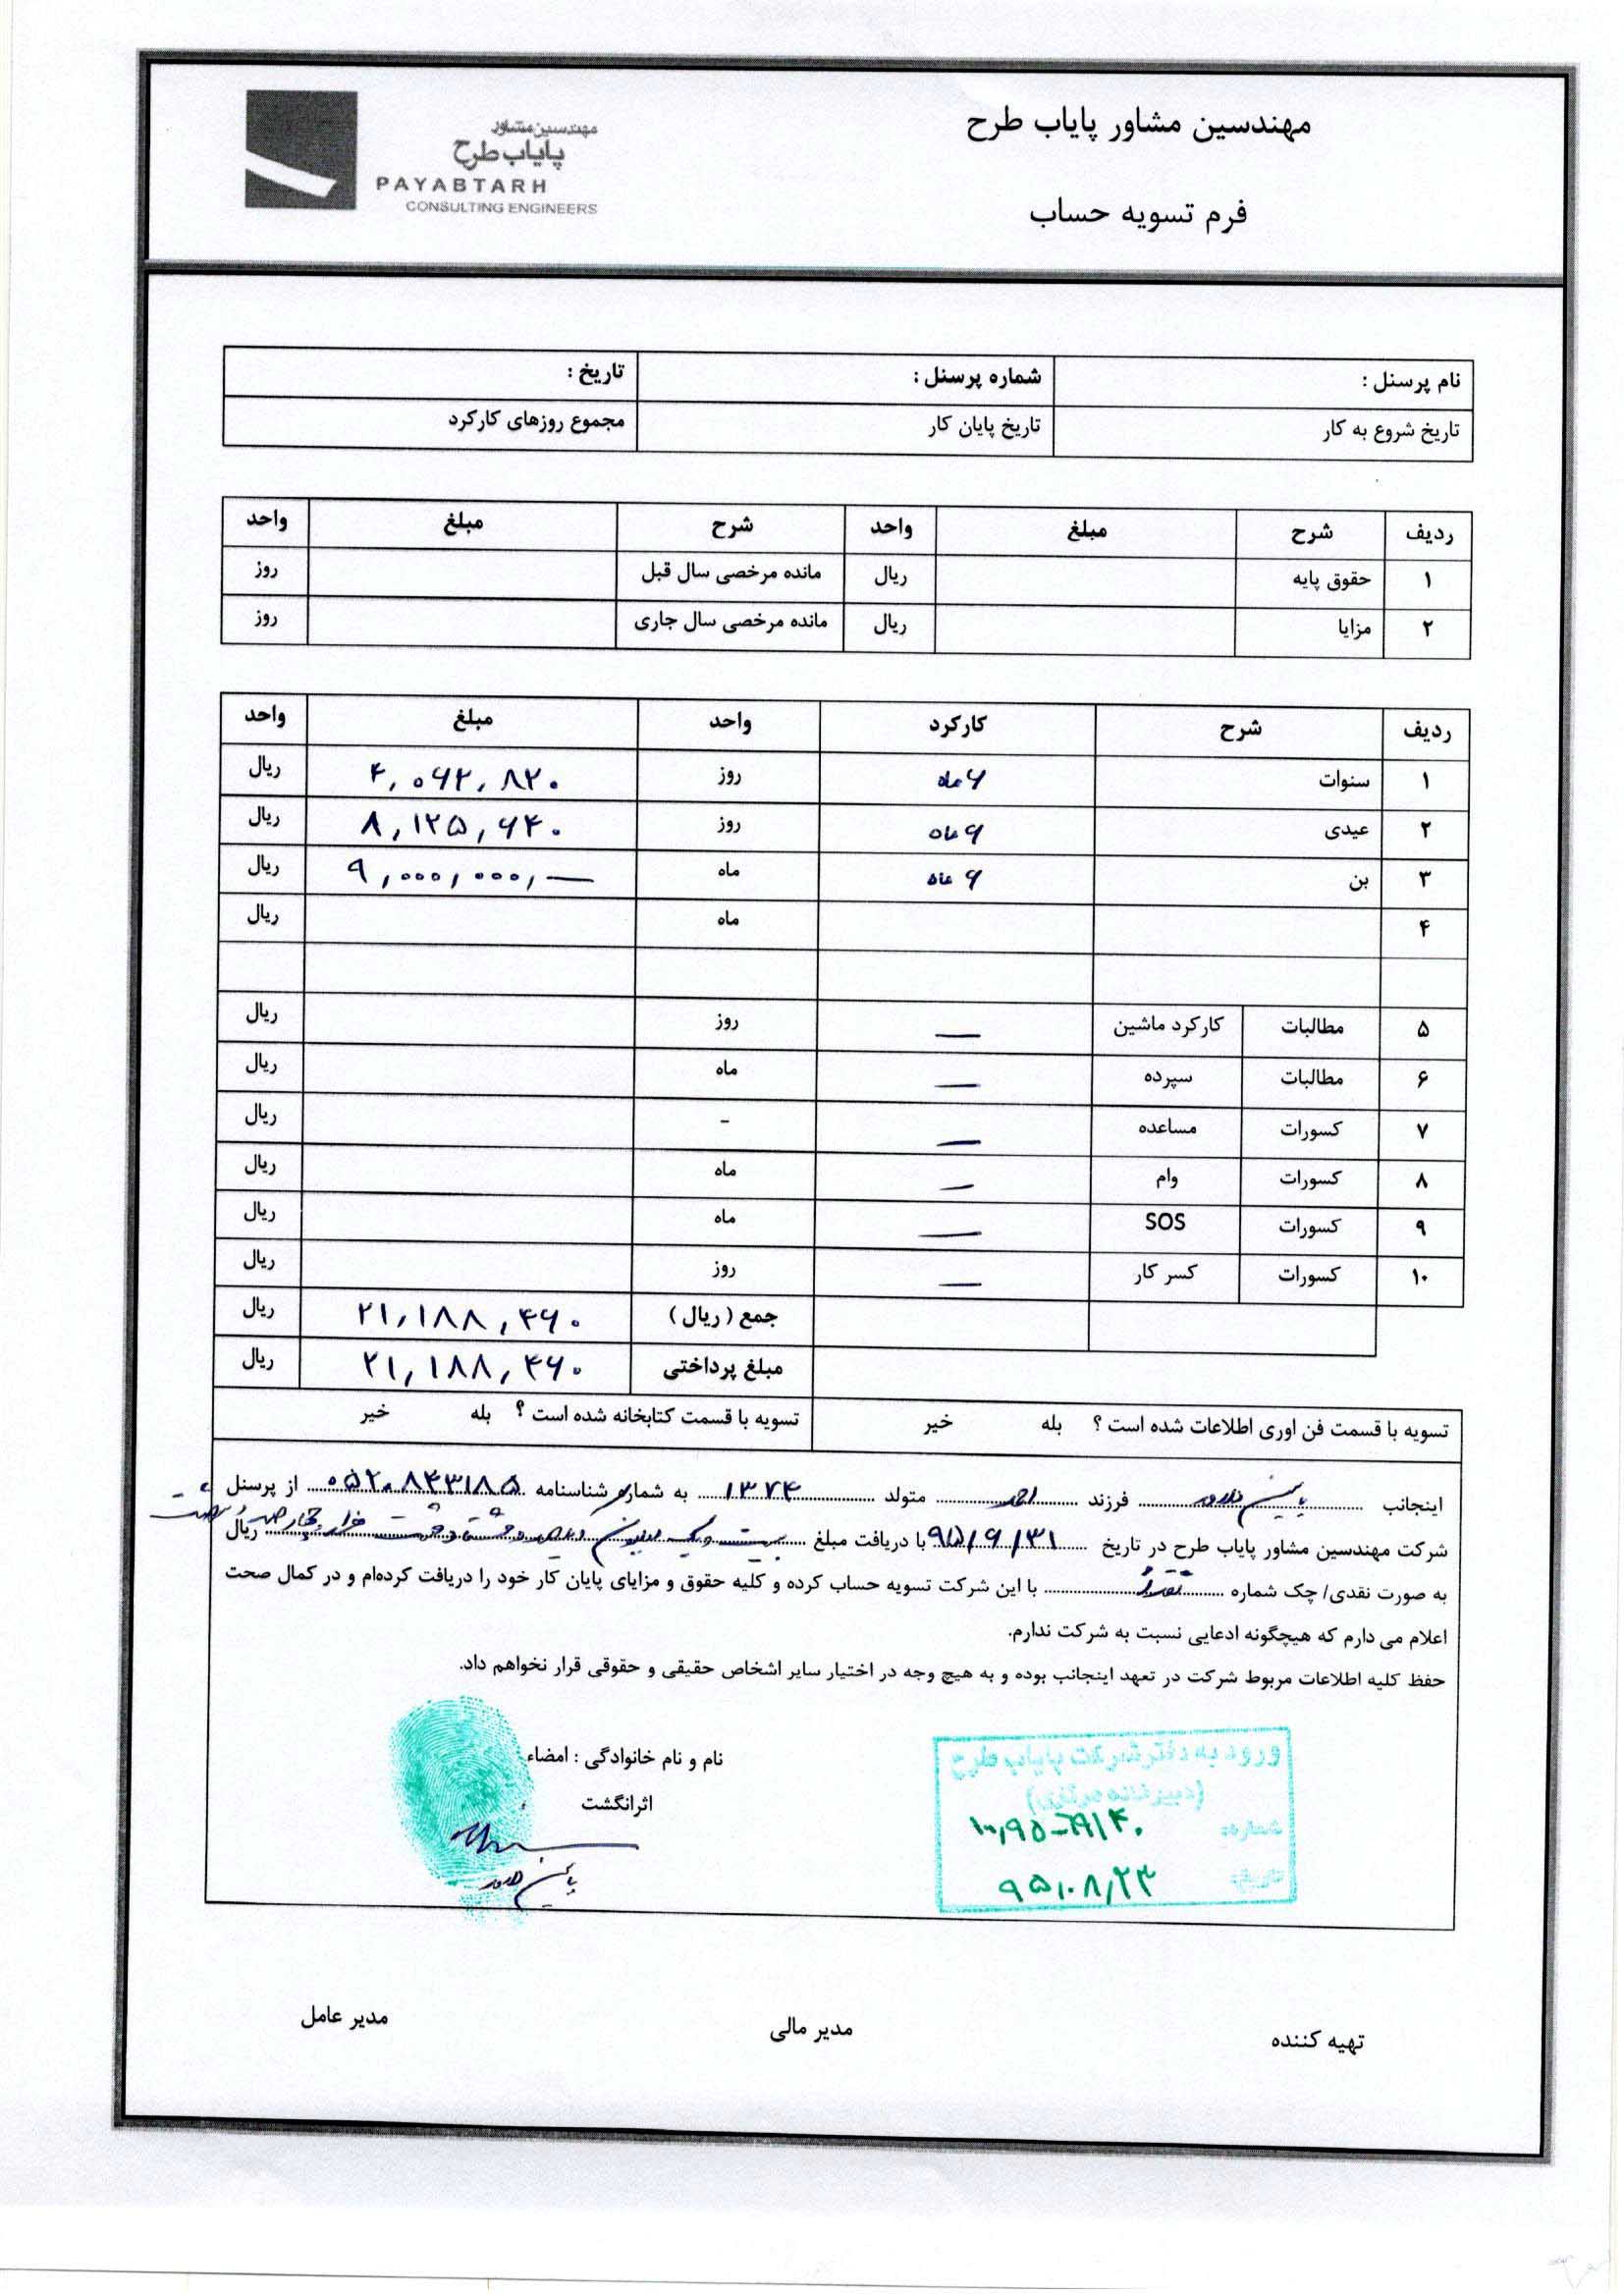 مهندسین مشاور پایاب طرح
مهندسین مشاور
پایاب طرح
PAYABTARH
CONSULTING ENGINEERS
فرم تسویه حساب
نام پرسنل : شماره پرسنل : تاریخ :
تاریخ شروع به کار تاریخ پایان کار مجموع روزهای کارکرد
ردیف شرح مبلغ واحد شرح مبلغ واحد
۱ حقوق پایه ریال مانده مرخصی سال قبل روز
۲ مزایا ریال مانده مرخصی سال جاری روز
ردیف شرح کارکرد واحد مبلغ واحد
۱ سنوات ۶ ماه روز ۴,۰۶۲,۸۲۰ ریال
۲ عیدی ۶ ماه روز ۸,۱۲۵,۶۴۰ ریال
۳ بن ۶ ماه ماه ۹,۰۰۰,۰۰۰,— ریال
۴ ماه ریال
۵ مطالبات کارکرد ماشین — روز ریال
۶ مطالبات سپرده — ماه ریال
۷ کسورات مساعده — - ریال
۸ کسورات وام — ماه ریال
۹ کسورات SOS — ماه ریال
۱۰ کسورات کسر کار — روز ریال
جمع ( ریال ) ۲۱,۱۸۸,۴۶۰ ریال
مبلغ پرداختی ۲۱,۱۸۸,۴۶۰ ریال
تسویه با قسمت فن اوری اطلاعات شده است ؟ بله خیر تسویه با قسمت کتابخانه شده است ؟ بله خیر
اینجانب یاسین فرزند احمد متولد ۱۳۷۴ به شماره شناسنامه ۰۵۲۰۸۴۳۱۸۵ از پرسنل
شرکت مهندسین مشاور پایاب طرح در تاریخ ۹۵/۶/۳۱ با دریافت مبلغ بیست و یک میلیون و یکصد و هشتاد و هشت هزار و چهارصد و شصت ریال
به صورت نقدی/ چک شماره نقداً با این شرکت تسویه حساب کرده و کلیه حقوق و مزایای پایان کار خود را دریافت کرده‌ام و در کمال صحت
اعلام می دارم که هیچگونه ادعایی نسبت به شرکت ندارم.
حفظ کلیه اطلاعات مربوط شرکت در تعهد اینجانب بوده و به هیچ وجه در اختیار سایر اشخاص حقیقی و حقوقی قرار نخواهم داد.
نام و نام خانوادگی : امضاء
اثرانگشت
یاسین
ورود به دفتر شرکت پایاب طرح
(دبیرخانه مرکزی)
شماره:
تاریخ: ۹۵/۰۸/۲۳
تهیه کننده مدیر مالی مدیر عامل